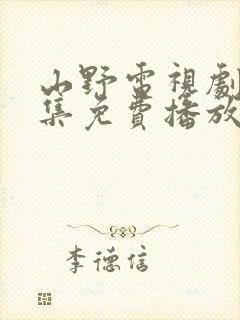 山野雷視劇
集免費播放
李德信